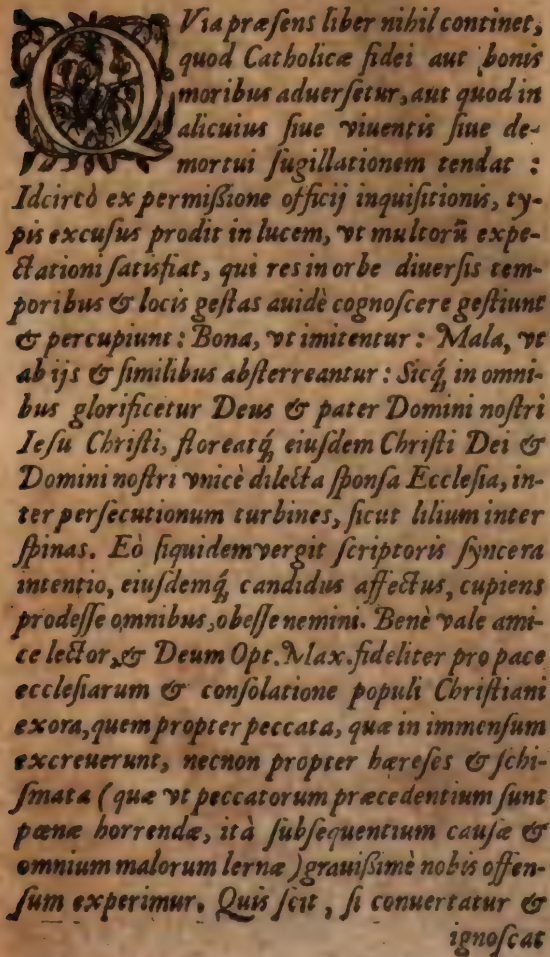 QVia præſens liber nihil continet,
quod Catholicæ fidei aut bonis
moribus aduerſetur, aut quod in
alicuius ſiue viuentis ſiue de-
mortui ſugillationem tendat :
Idcircò ex permißione officij inquiſitionis, ty-
pis excuſus prodit in lucem, vt multorũ expe-
ctationi ſatisfiat, qui res in orbe diuerſis tem-
poribus & locis geſtas auidè cognoſcere geſtiunt
& percupiunt : Bona, vt imitentur : Mala, vt
ab ijs & ſimilibus abſterreantur : Sicq́; in omni-
bus glorificetur Deus & pater Domini noſtri
Ieſu Chriſti, floreatq́; eiuſdem Chriſti Dei &
Domini noſtri vnicè dilecta ſponſa Eccleſia, in-
ter perſecutionum turbines, ſicut lilium inter
ſpinas. Eò ſiquidem vergit ſcriptoris ſyncera
intentio, eiuſdemq́; candidus affectus, cupiens
prodeſſe omnibus, obeſſe nemini. Benè vale ami-
ce lector, & Deum Opt. Max. fideliter pro pace
eccleſiarum & conſolatione populi Chriſtiani
exora, quem propter peccata, quæ in immenſum
excreuerunt, necnon propter hæreſes & ſchi-
ſmata ( quæ vt peccatorum præcedentium ſunt
pœnæ horrendæ, ità ſubſequentium cauſæ &
omnium malorum lernæ ) grauißimè nobis offen-
ſum experimur. Quis ſcit, ſi conuertatur &
ignoſcat